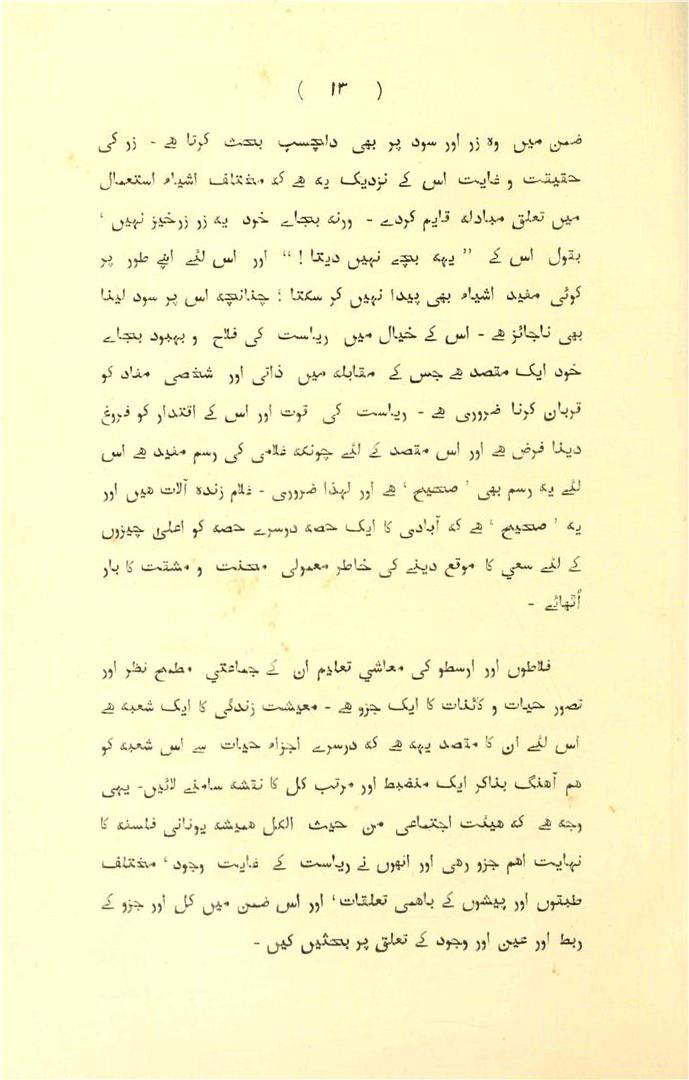 ( ۱۳ )
ضمن میں وہ زر اور سود پر بھی دلچسپ بحث کرتا ہے - زر کی
حقیقت و غایت اس کے نزدیک یہ ہے کہ مختلف اشیاء استعمال
میں تعلق مبادلہ قایم کردے - ورنہ بجاے خود یہ زر زرخیز نہیں ،
بقول اس کے ” یہہ بچے نہیں دیتا ! “ اور اس لئے اپنے طور پر
کوئی مفید اشیاء بھی پیدا نہیں کر سکتا ؛ چنانچہ اس پر سود لینا
بھی ناجائز ہے - اس کے خیال میں ریاست کی فلاح و بہبود بجاے
خود ایک مقصد ہے جس کے مقابلہ میں ذاتی اور شخصی مفاد کو
قربان کرنا ضروری ہے - ریاست کی قوت اور اس کے اقتدار کو فروغ
دینا فرض ہے اور اس مقصد کے لئے چونکہ غلامی کی رسم مفید ہے اس
لئے یہ رسم بھی ’ صحیح ‘ ہے اور لہذا ضروری - غلام زندہ آلات ہیں اور
یہ ’ صحیح ‘ ہے کہ آبادی کا ایک حصہ دوسرے حصہ کو اعلیٰ چیزوں
کے لئے سعي کا موقع دینے کی خاطر معمولی محنت و مشقت کا بار
اُٹھائے -
فلاطوں اور ارسطو کی معاشي تعلیم ان کے جماعتي مطمح نظر اور
تصور حیات و کائنات کا ایک جزو ہے - معیشت زندگی کا ایک شعبہ ہے
اس لئے ان کا مقصد یہہ ہے کہ دوسرے اجزاء حیات سے اس شعبہ کو
ہم آہنگ بناکر ایک منضبط اور مرتب کل کا نقشہ سامنے لائیں- یہی
وجہ ہے کہ ہیئت اجتماعی من حیث الکل ہمیشہ یونانی فلسفہ کا
نہایت اہم جزو رہی اور انھوں نے ریاست کے غایت وجود ، مختلف
طبقوں اور پیشوں کے باہمی تعلقات ، اور اس ضمن میں کل اور جزو کے
ربط اور عین اور وجود کے تعلق پر بحثیں کیں -